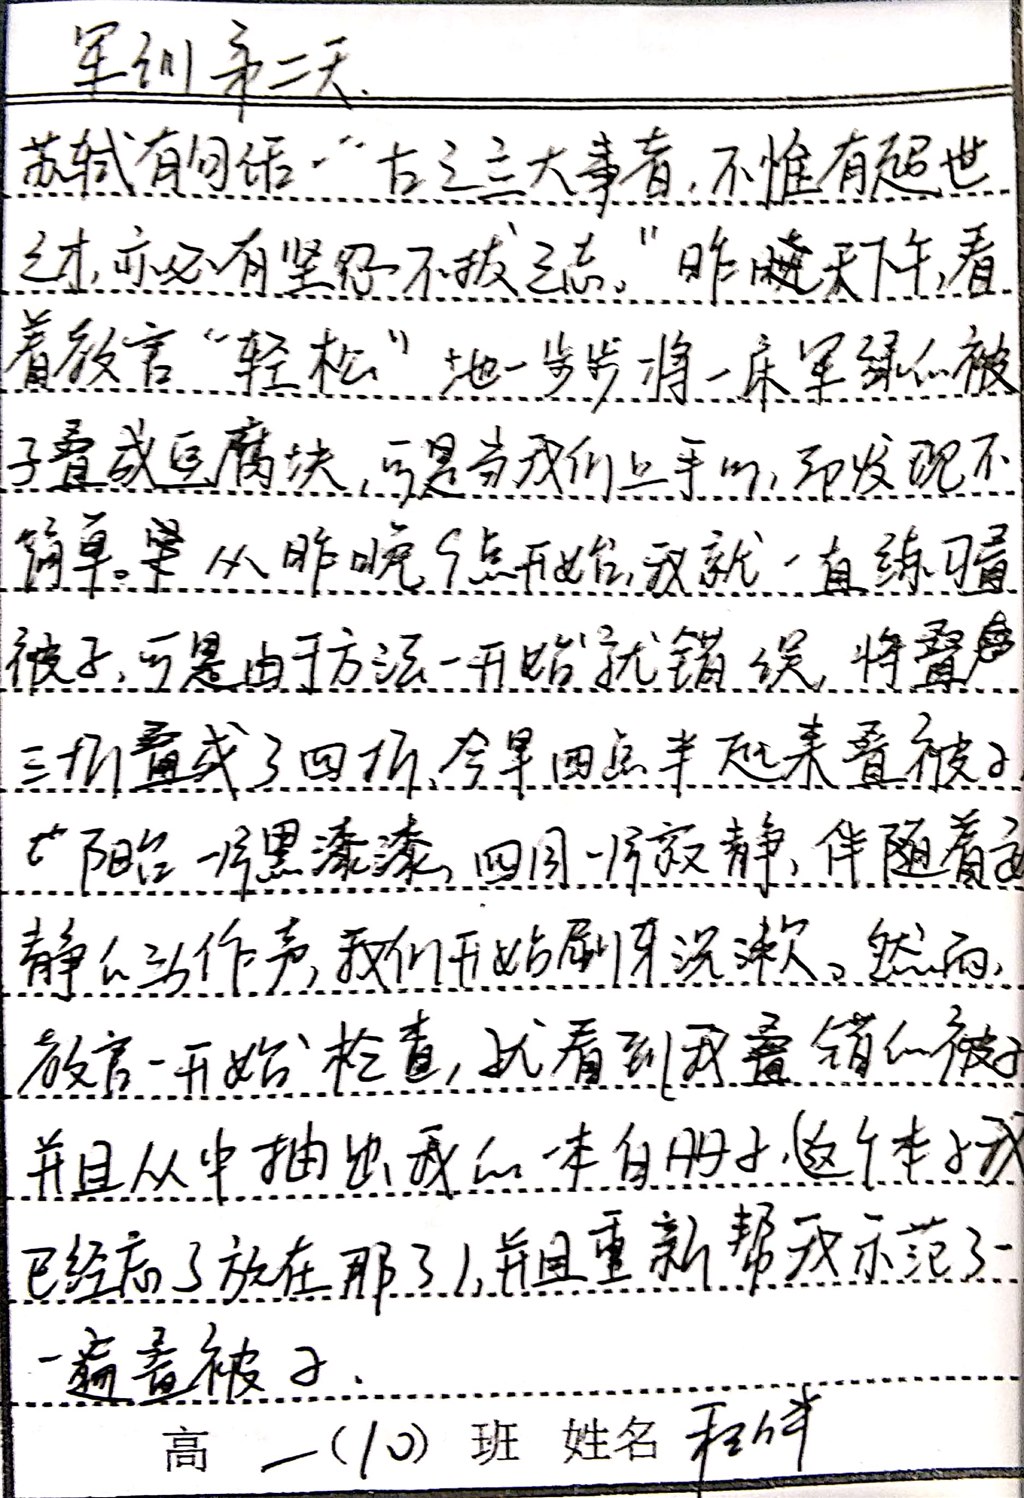 军训第二天.
苏轼有句话:“古之立大事者,不惟有超世
之才,亦必有坚忍不拔之志。”昨天下午,看
着教官“轻松”地一步步将一床军绿的被
子叠成豆腐块,可是当我们上手时,却发现不
简单。从昨晚9点开始,我就一直练习叠
被子,可是由于方法一开始就错误,将叠
三折叠成了四折,今早四点半起来叠被子,
阳台一片黑漆漆,四周一片寂静,伴随着
静的动作声,我们开始刷牙洗漱。然而,
教官一开始检查,就看到我叠错的被子
并且从中抽出我的一本自册子,(这个本子我
已经忘了放在那了),并且重新帮我示范了一
一遍叠被子.
高一(10)班 姓名